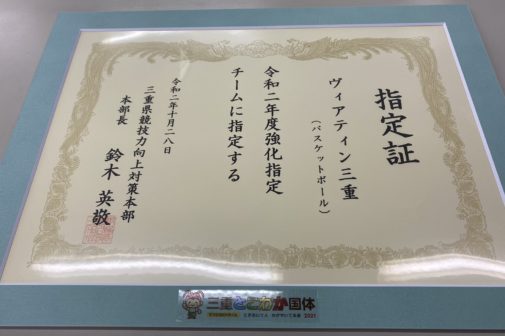 指定証
ヴィアティン三重
(バスケットボール)
令和二年度強化指定
チームに指定する
令和二年十月二八日
三重県競技力向上対策本部
本部長 鈴木英敬
三重とこわか国体
2021